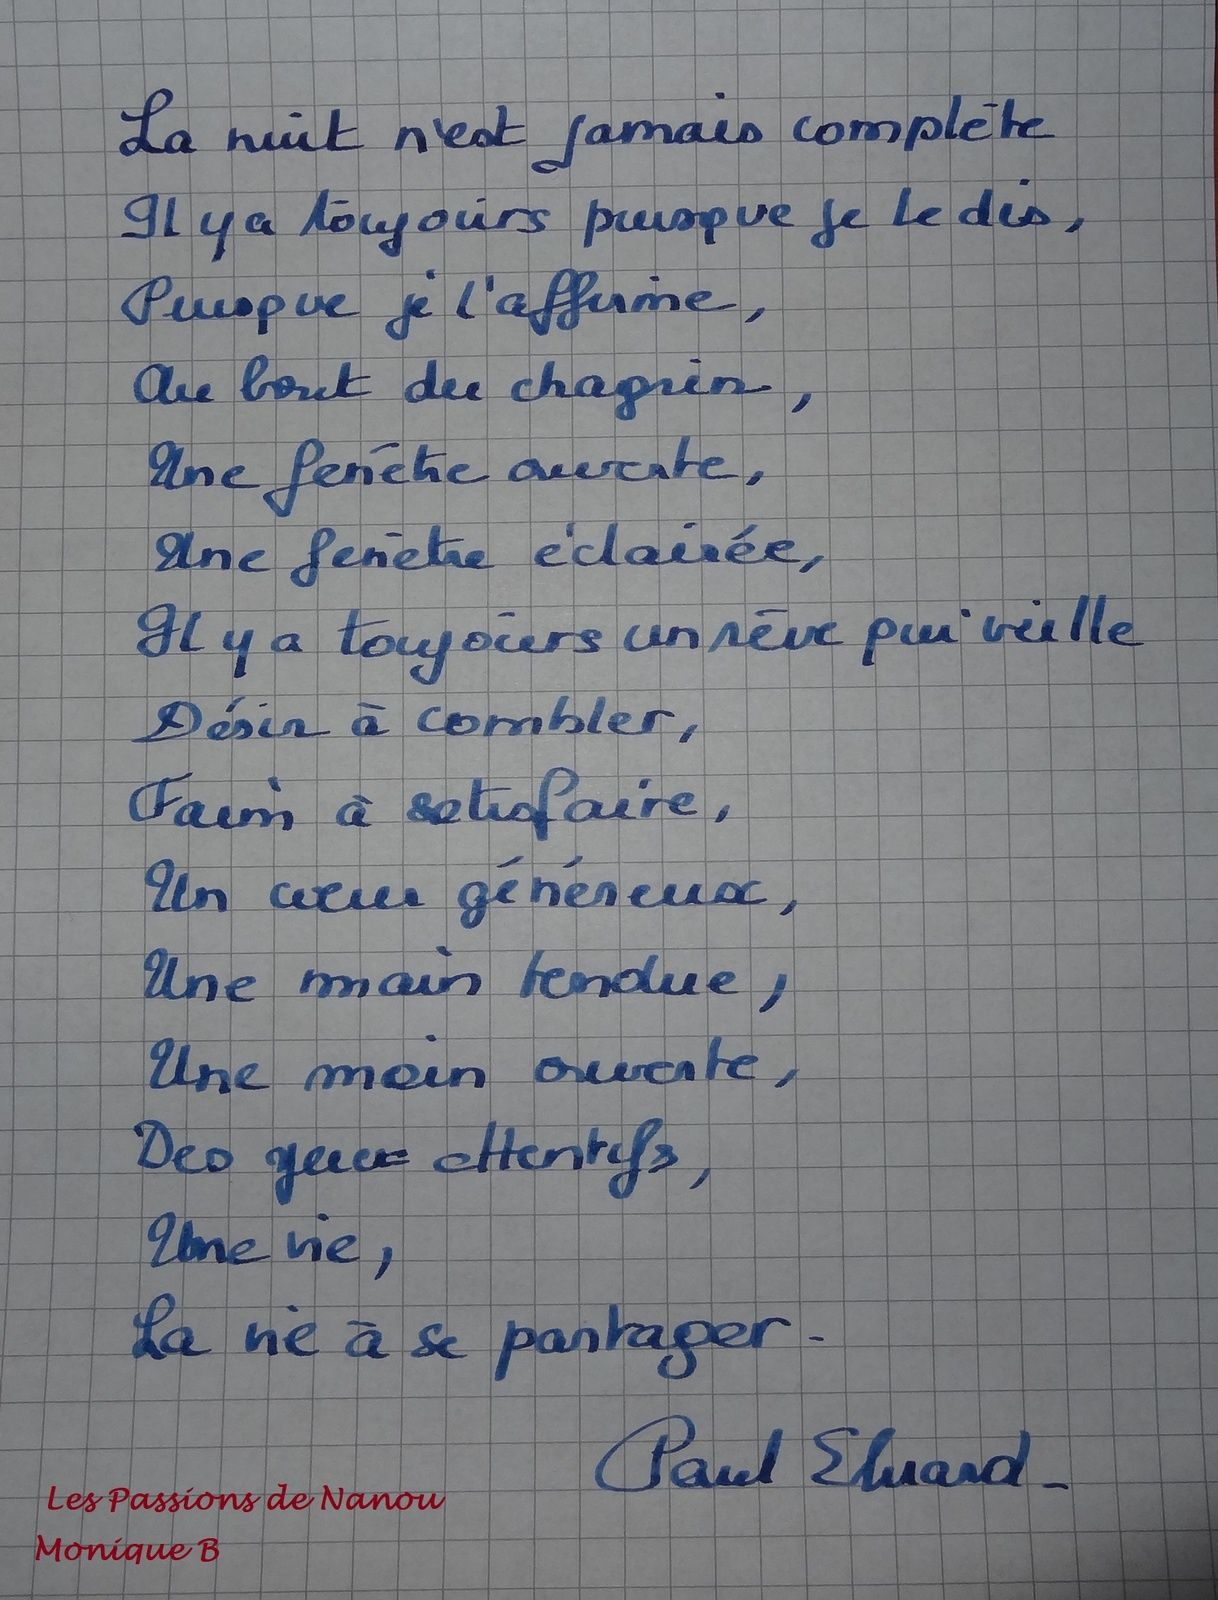 La nuit n'est jamais complète
Il y a toujours puisque je le dis,
Puisque je l'affirme,
Au bout du chagrin,
Une fenêtre ouverte,
Une fenêtre éclairée,
Il y a toujours un rêve qui veille
Désir à combler,
Faim à satisfaire,
Un cœur généreux,
Une main tendue,
Une main ouverte,
Des yeux attentifs,
Une vie,
La vie à se partager.
Paul Eluard.
Les Passions de Nanou
Monique B